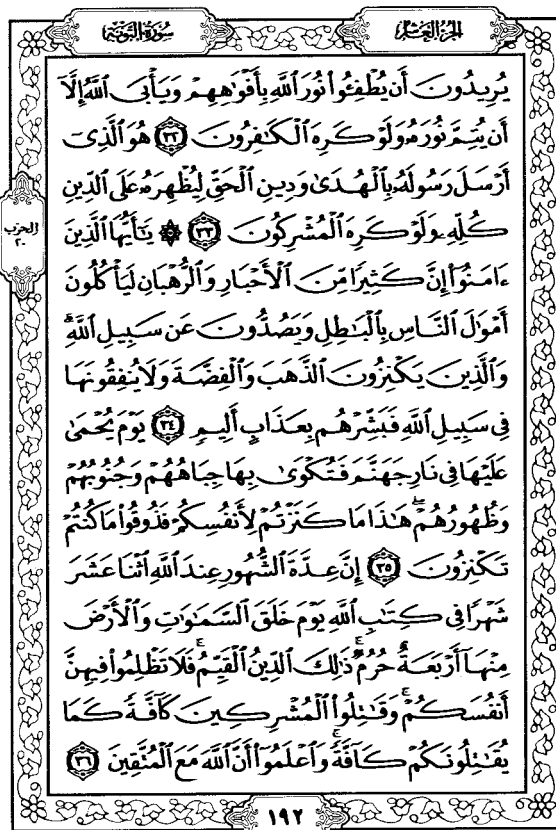 سُورَةُ التَّوْبَةِ
الجُزْءُ العَاشِرُ
يُرِيدُونَ أَن يُطْفِـُٔوا۟ نُورَ ٱللَّهِ بِأَفْوَٰهِهِمْ وَيَأْبَى ٱللَّهُ إِلَّآ
أَن يُتِمَّ نُورَهُۥ وَلَوْ كَرِهَ ٱلْكَـٰفِرُونَ ٣٢ هُوَ ٱلَّذِىٓ
أَرْسَلَ رَسُولَهُۥ بِٱلْهُدَىٰ وَدِينِ ٱلْحَقِّ لِيُظْهِرَهُۥ عَلَى ٱلدِّينِ
كُلِّهِۦ وَلَوْ كَرِهَ ٱلْمُشْرِكُونَ ٣٣ ۞ يَـٰٓأَيُّهَا ٱلَّذِينَ
ءَامَنُوٓا۟ إِنَّ كَثِيرًا مِّنَ ٱلْأَحْبَارِ وَٱلرُّهْبَانِ لَيَأْكُلُونَ
أَمْوَٰلَ ٱلنَّاسِ بِٱلْبَـٰطِلِ وَيَصُدُّونَ عَن سَبِيلِ ٱللَّهِ ۗ
وَٱلَّذِينَ يَكْنِزُونَ ٱلذَّهَبَ وَٱلْفِضَّةَ وَلَا يُنفِقُونَهَا
فِى سَبِيلِ ٱللَّهِ فَبَشِّرْهُم بِعَذَابٍ أَلِيمٍ ٣٤ يَوْمَ يُحْمَىٰ
عَلَيْهَا فِى نَارِ جَهَنَّمَ فَتُكْوَىٰ بِهَا جِبَاهُهُمْ وَجُنُوبُهُمْ
وَظُهُورُهُمْ ۖ هَـٰذَا مَا كَنَزْتُمْ لِأَنفُسِكُمْ فَذُوقُوا۟ مَا كُنتُمْ
تَكْنِزُونَ ٣٥ إِنَّ عِدَّةَ ٱلشُّهُورِ عِندَ ٱللَّهِ ٱثْنَا عَشَرَ
شَهْرًا فِى كِتَـٰبِ ٱللَّهِ يَوْمَ خَلَقَ ٱلسَّمَـٰوَٰتِ وَٱلْأَرْضَ
مِنْهَآ أَرْبَعَةٌ حُرُمٌ ۚ ذَٰلِكَ ٱلدِّينُ ٱلْقَيِّمُ ۚ فَلَا تَظْلِمُوا۟ فِيهِنَّ
أَنفُسَكُمْ ۚ وَقَـٰتِلُوا۟ ٱلْمُشْرِكِينَ كَآفَّةً كَمَا
يُقَـٰتِلُونَكُمْ كَآفَّةً ۚ وَٱعْلَمُوٓا۟ أَنَّ ٱللَّهَ مَعَ ٱلْمُتَّقِينَ ٣٦
الحزب
٢٠
١٩٢